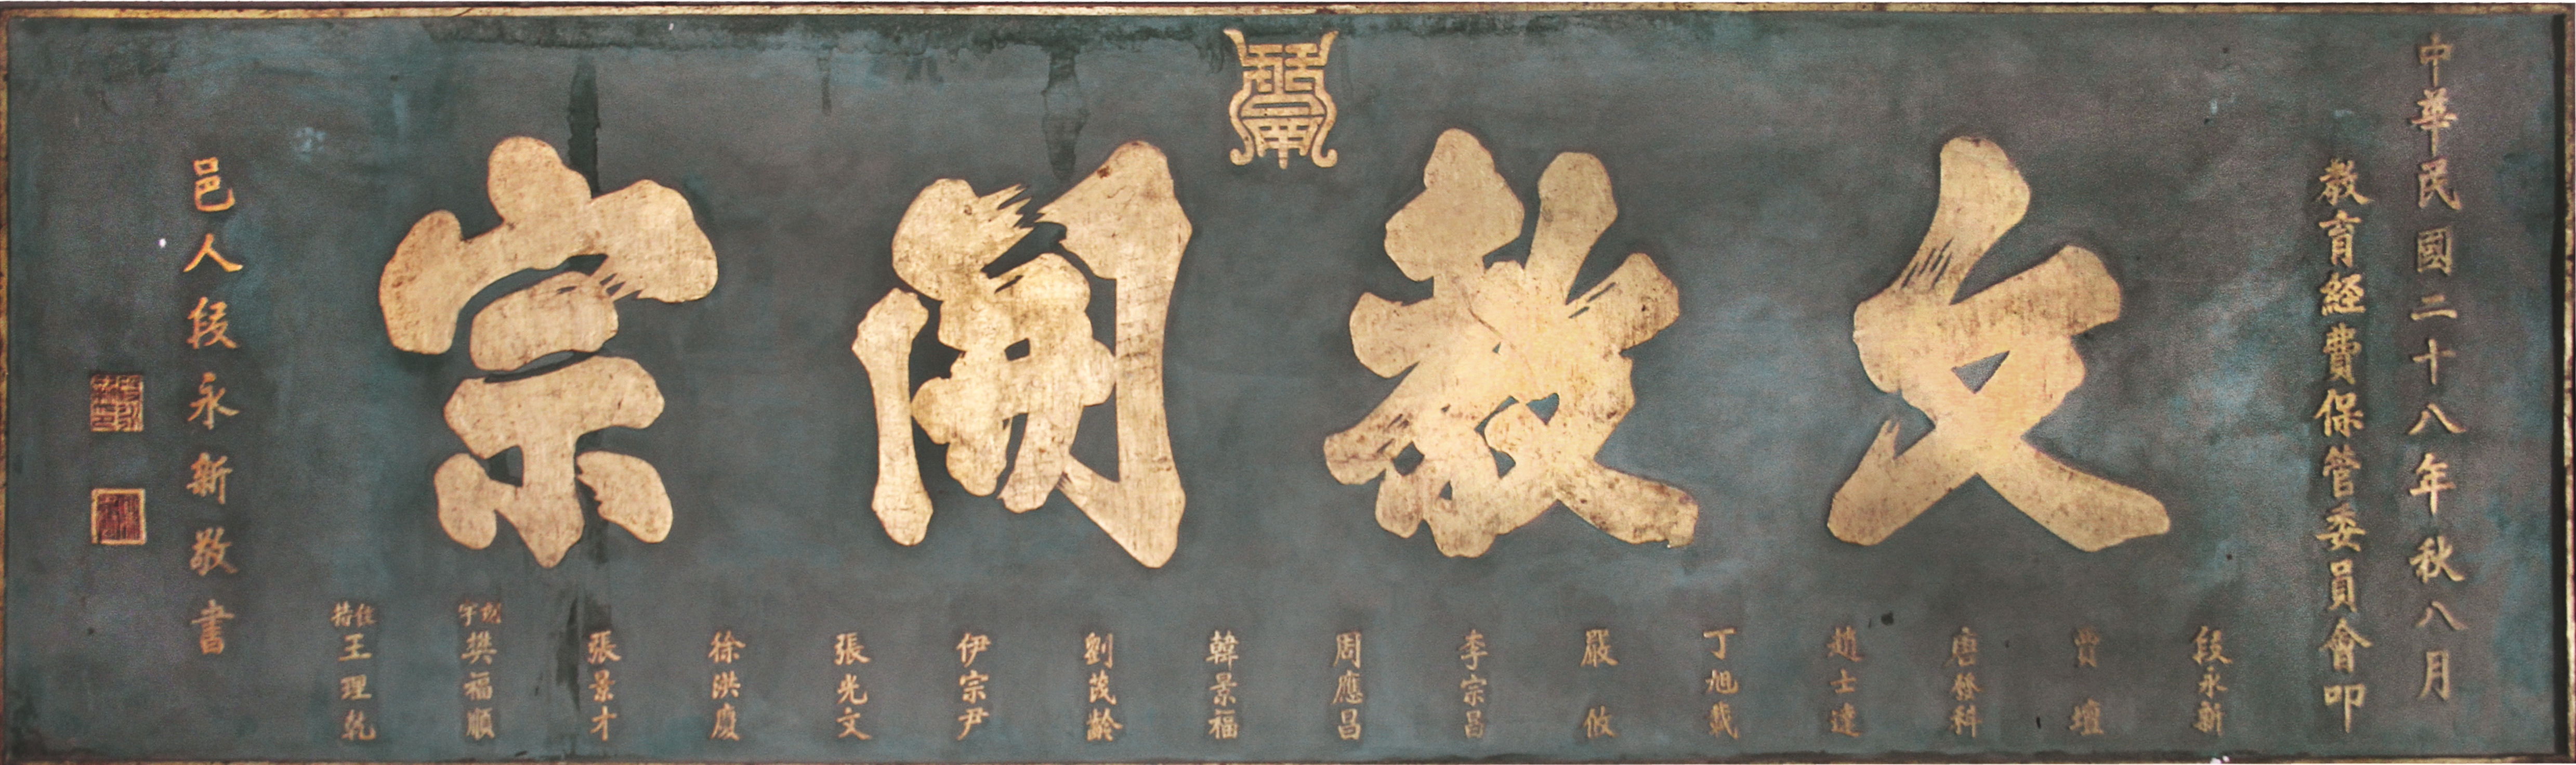 中華民國二十八年秋八月
教育經費保管委員會叩
文教開宗
段永新
賈壇
唐發科
趙士達
丁旭載
嚴攸
李宗昌
周應昌
韓景福
劉茂齡
伊宗尹
張光文
徐洪慶
張景才
刻字樊福順
住持王理乾
邑人段永新敬書